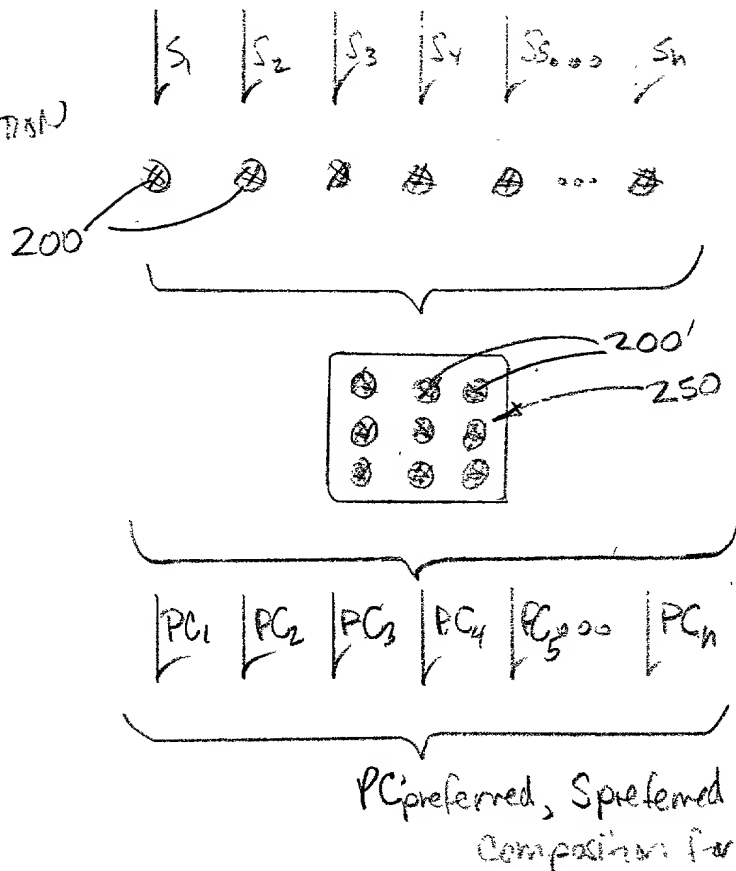 S₁ S₂ S₃ S₄ S₅... Sₙ
200
200'
250
PC₁ PC₂ PC₃ PC₄ PC₅... PCₙ
PCpreferred, Spreferred
Composition for